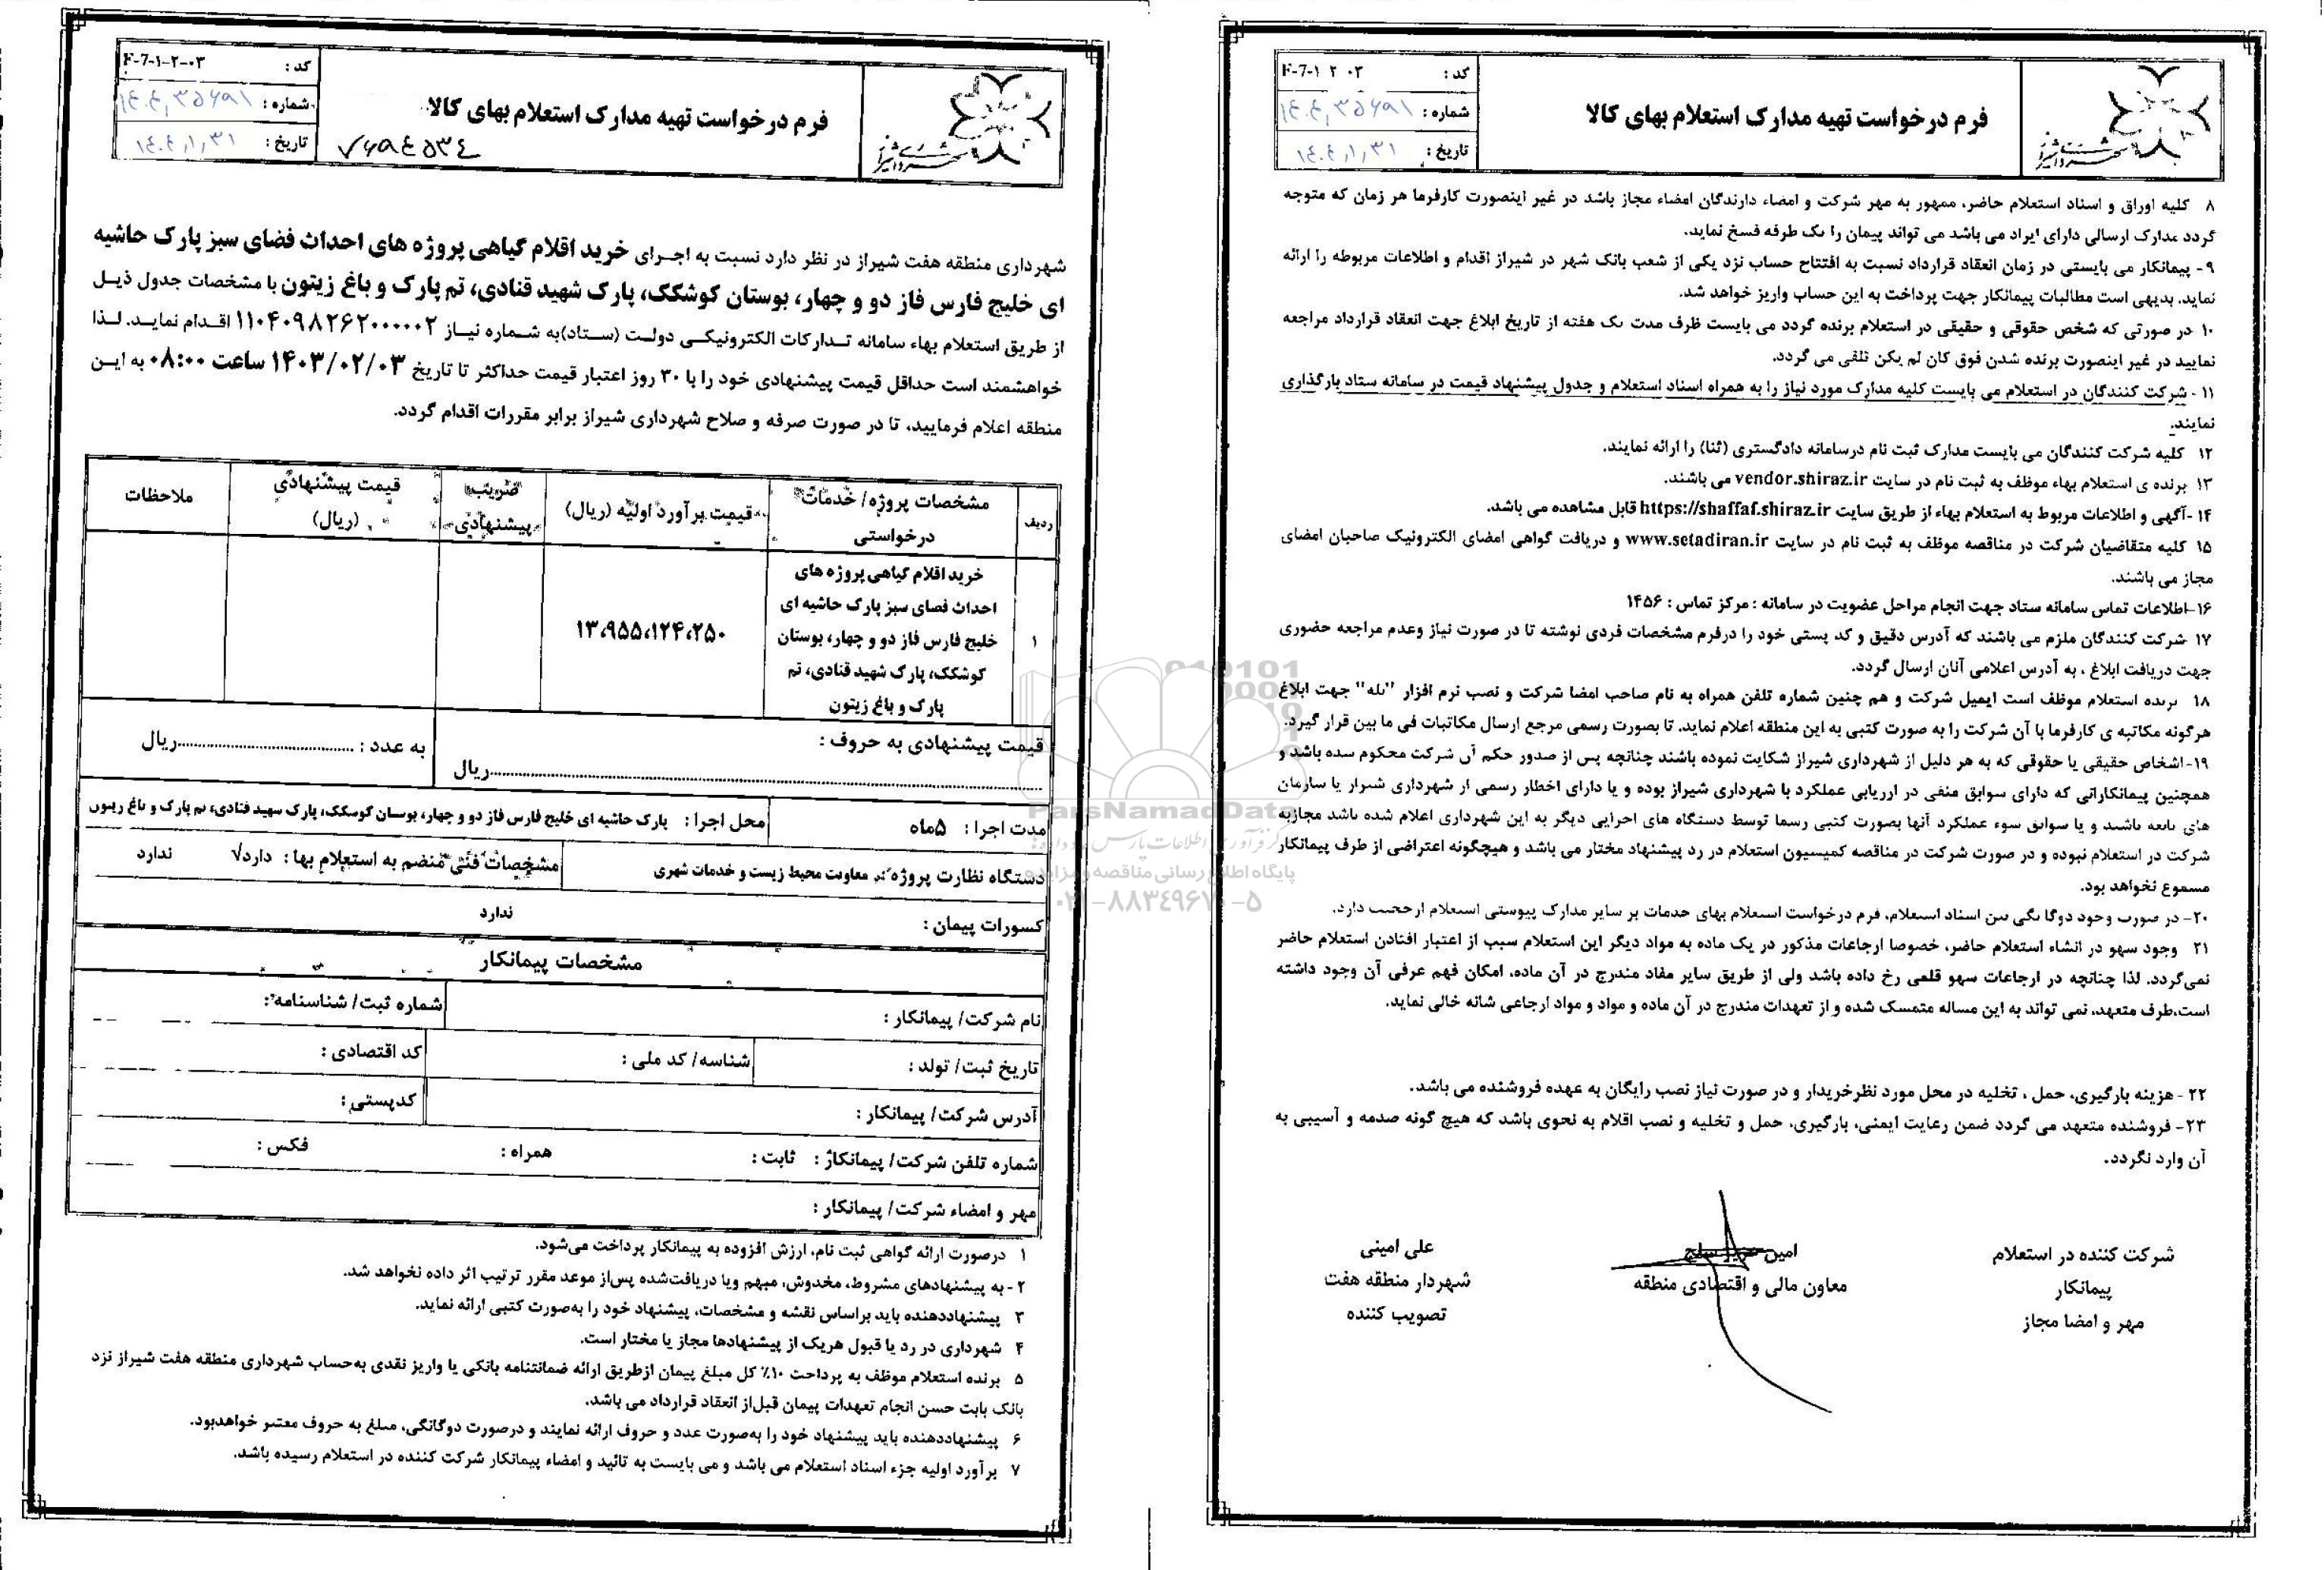 فرم درخواست تهیه مدارک استعلام بهای کالا
۷۶۹۴۵۳۴
کد : F-7-۱-۲-۰۳
شماره : ۱۴۰۴,۳۵۶۹۱
تاریخ : ۱۴۰۴,۱,۳۱
شهرداری منطقه هفت شیراز در نظر دارد نسبت به اجرای خرید اقلام گیاهی پروژه های احداث فضای سبز پارک حاشیه
ای خلیج فارس فاز دو و چهار، بوستان کوشکک، پارک شهید قنادی، تم پارک و باغ زیتون با مشخصات جدول ذیل
از طریق استعلام بهاء سامانه تدارکات الکترونیکی دولت (ستاد)به شماره نیاز ۱۱۰۴۰۹۸۲۶۲۰۰۰۰۰۲ اقدام نماید. لذا
خواهشمند است حداقل قیمت پیشنهادی خود را با ۳۰ روز اعتبار قیمت حداکثر تا تاریخ ۱۴۰۳/۰۲/۰۳ ساعت ۰۸:۰۰ به این
منطقه اعلام فرمایید، تا در صورت صرفه و صلاح شهرداری شیراز برابر مقررات اقدام گردد.
ردیف
مشخصات پروژه/ خدمات درخواستی
قیمت برآورد اولیه (ریال)
ضریب پیشنهادی
قیمت پیشنهادی (ریال)
ملاحظات
۱
خرید اقلام گیاهی پروژه های
احداث فضای سبز پارک حاشیه ای
خلیج فارس فاز دو و چهار، بوستان
کوشکک، پارک شهید قنادی، تم
پارک و باغ زیتون
۱۳،۹۵۵،۱۲۴،۲۵۰
قیمت پیشنهادی به حروف :
..........ریال
به عدد : ..........ریال
مدت اجرا : ۵ماه
محل اجرا : پارک حاشیه ای خلیج فارس فاز دو و چهار، بوستان کوشکک، پارک شهید قنادی، تم پارک و باغ زیتون
دستگاه نظارت پروژه : معاونت محیط زیست و خدمات شهری
مشخصات فنی منضم به استعلام بها : دارد√ ندارد
کسورات پیمان : ندارد
مشخصات پیمانکار
نام شرکت/ پیمانکار :
شماره ثبت/ شناسنامه :
تاریخ ثبت/ تولد :
شناسه/ کد ملی :
کد اقتصادی :
آدرس شرکت/ پیمانکار :
کدپستی :
شماره تلفن شرکت/ پیمانکار : ثابت :
همراه :
فکس :
مهر و امضاء شرکت/ پیمانکار :
۱ درصورت ارائه گواهی ثبت نام، ارزش افزوده به پیمانکار پرداخت می‌شود.
۲- به پیشنهادهای مشروط، مخدوش، مبهم ویا دریافت‌شده پس‌از موعد مقرر ترتیب اثر داده نخواهد شد.
۳ پیشنهاددهنده باید براساس نقشه و مشخصات، پیشنهاد خود را به‌صورت کتبی ارائه نماید.
۴ شهرداری در رد یا قبول هریک از پیشنهادها مجاز یا مختار است.
۵ برنده استعلام موظف به پرداخت ۱۰٪ کل مبلغ پیمان ازطریق ارائه ضمانتنامه بانکی یا واریز نقدی به‌حساب شهرداری منطقه هفت شیراز نزد
بانک بابت حسن انجام تعهدات پیمان قبل‌از انعقاد قرارداد می باشد.
۶ پیشنهاددهنده باید پیشنهاد خود را به‌صورت عدد و حروف ارائه نمایند و درصورت دوگانگی، مبلغ به حروف معتبر خواهدبود.
۷ برآورد اولیه جزء اسناد استعلام می باشد و می بایست به تائید و امضاء پیمانکار شرکت کننده در استعلام رسیده باشد.
فرم درخواست تهیه مدارک استعلام بهای کالا
کد : F-7-۱ ۲ ۰۳
شماره : ۱۴۰۴,۳۵۶۹۱
تاریخ : ۱۴۰۴,۱,۳۱
۸ کلیه اوراق و اسناد استعلام حاضر، ممهور به مهر شرکت و امضاء دارندگان امضاء مجاز باشد در غیر اینصورت کارفرما هر زمان که متوجه
گردد مدارک ارسالی دارای ایراد می باشد می تواند پیمان را یک طرفه فسخ نماید.
۹- پیمانکار می بایستی در زمان انعقاد قرارداد نسبت به افتتاح حساب نزد یکی از شعب بانک شهر در شیراز اقدام و اطلاعات مربوطه را ارائه
نماید. بدیهی است مطالبات پیمانکار جهت پرداخت به این حساب واریز خواهد شد.
۱۰ در صورتی که شخص حقوقی و حقیقی در استعلام برنده گردد می بایست ظرف مدت یک هفته از تاریخ ابلاغ جهت انعقاد قرارداد مراجعه
نمایید در غیر اینصورت برنده شدن فوق کان لم یکن تلقی می گردد.
۱۱ - شرکت کنندگان در استعلام می بایست کلیه مدارک مورد نیاز را به همراه اسناد استعلام و جدول پیشنهاد قیمت در سامانه ستاد بارگذاری
نمایند.
۱۲ کلیه شرکت کنندگان می بایست مدارک ثبت نام درسامانه دادگستری (ثنا) را ارائه نمایند.
۱۳ برنده ی استعلام بهاء موظف به ثبت نام در سایت vendor.shiraz.ir می باشند.
۱۴ -آگهی و اطلاعات مربوط به استعلام بهاء از طریق سایت https://shaffaf.shiraz.ir قابل مشاهده می باشد.
۱۵ کلیه متقاضیان شرکت در مناقصه موظف به ثبت نام در سایت www.setadiran.ir و دریافت گواهی امضای الکترونیک صاحبان امضای
مجاز می باشند.
۱۶-اطلاعات تماس سامانه ستاد جهت انجام مراحل عضویت در سامانه : مرکز تماس : ۱۴۵۶
۱۷ شرکت کنندگان ملزم می باشند که آدرس دقیق و کد پستی خود را درفرم مشخصات فردی نوشته تا در صورت نیاز وعدم مراجعه حضوری
جهت دریافت ابلاغ ، به آدرس اعلامی آنان ارسال گردد.
۱۸ برنده استعلام موظف است ایمیل شرکت و هم چنین شماره تلفن همراه به نام صاحب امضا شرکت و نصب نرم افزار "بله" جهت ابلاغ
هرگونه مکاتبه ی کارفرما با آن شرکت را به صورت کتبی به این منطقه اعلام نماید، تا بصورت رسمی مرجع ارسال مکاتبات فی ما بین قرار گیرد.
۱۹-اشخاص حقیقی یا حقوقی که به هر دلیل از شهرداری شیراز شکایت نموده باشند چنانچه پس از صدور حکم آن شرکت محکوم شده باشد و
همچنین پیمانکارانی که دارای سوابق منفی در ارزیابی عملکرد با شهرداری شیراز بوده و یا دارای اخطار رسمی از شهرداری شیراز یا سازمان
های تابعه باشند و یا سوابق سوء عملکرد آنها بصورت کتبی رسما توسط دستگاه های اجرایی دیگر به این شهرداری اعلام شده باشد مجازبه
شرکت در استعلام نبوده و در صورت شرکت در مناقصه کمیسیون استعلام در رد پیشنهاد مختار می باشد و هیچگونه اعتراضی از طرف پیمانکار
مسموع نخواهد بود.
۲۰- در صورت وجود دوگانگی بین اسناد استعلام، فرم درخواست استعلام بهای خدمات بر سایر مدارک پیوستی استعلام ارجحیت دارد.
۲۱ وجود سهو در انشاء استعلام حاضر، خصوصا ارجاعات مذکور در یک ماده به مواد دیگر این استعلام سبب از اعتبار افتادن استعلام حاضر
نمی‌گردد. لذا چنانچه در ارجاعات سهو قلمی رخ داده باشد ولی از طریق سایر مفاد مندرج در آن ماده، امکان فهم عرفی آن وجود داشته
است،طرف متعهد، نمی تواند به این مساله متمسک شده و از تعهدات مندرج در آن ماده و مواد و مواد ارجاعی شانه خالی نماید.
۲۲ - هزینه بارگیری، حمل ، تخلیه در محل مورد نظرخریدار و در صورت نیاز نصب رایگان به عهده فروشنده می باشد.
۲۳- فروشنده متعهد می گردد ضمن رعایت ایمنی، بارگیری، حمل و تخلیه و نصب اقلام به نحوی باشد که هیچ گونه صدمه و آسیبی به
آن وارد نگردد.
شرکت کننده در استعلام
پیمانکار
مهر و امضا مجاز
امین
معاون مالی و اقتصادی منطقه
علی امینی
شهردار منطقه هفت
تصویب کننده
ParsNamadData
پایگاه اطلاع رسانی مناقصه و مزایده
۰۲۱-۸۸۳۴۹۶۷۰-۵